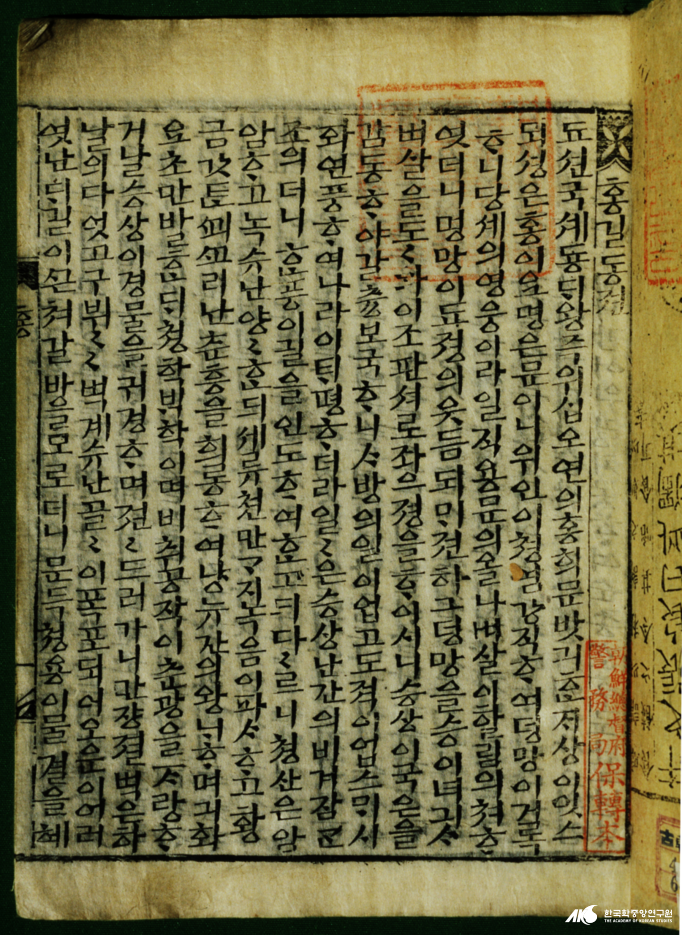 홍길동젼
됴션국셰둉ᄃᆡ왕즉위십오연의홍희문밧긔ᄒᆞᆫᄌᆡ상이잇스
되셩은홍이요명은문이니위인이쳥념강직ᄒᆞ여덕망이거록
ᄒᆞ니당셰의영웅이라일직용문의올나벼살이할림의쳐ᄒᆞ
엿더니명망이됴졍의읏듬되ᄆᆡ젼하그덕망을승이녀긔ᄉᆞ
벼살을도〻와이조판셔로좌으졍을ᄒᆞ이시니승상이국은을
감동ᄒᆞ야갈츙보국ᄒᆞ니ᄉᆞ방의일이업고도젹이업스ᄆᆡ시
화연풍ᄒᆞ여나라이ᄐᆡ평ᄒᆞ더라일〻은승상난간의비겨잠ᄭᅡᆫ
조의더니ᄒᆞᆫ풍이길을인도ᄒᆞ여ᄒᆞᆫ고ᄃᆡ다〻르니쳥산은암
암ᄒᆞ고녹슈난양〻ᄒᆞᆫᄃᆡ셰류쳔만ᄀᆞ지녹음이파ᄉᆞᄒᆞ고황
금갓튼ᄭᅬᄭᅩ리난츈흥을희롱ᄒᆞ여냥뉴간의왕ᄂᆡᄒᆞ며긔화
요초만발ᄒᆞᆫᄃᆡ쳥학ᄇᆡᆨ학이며비취공작이츈광을ᄌᆞ랑ᄒᆞ
거날승상이경물을귀경ᄒᆞ며졈〻드러가니만장졀벽은하
날의다엇고구뷔〻〻벽계슈난골〻이폭포되어오운이어러
엿난ᄃᆡ길이ᄭᅳᆫ쳐갈바을모로더니문득쳥용이물결을헤
홍
朝鮮總督府
警務局保轉本
한국학중앙연구원
THE ACADEMY OF KOREAN STUDIES